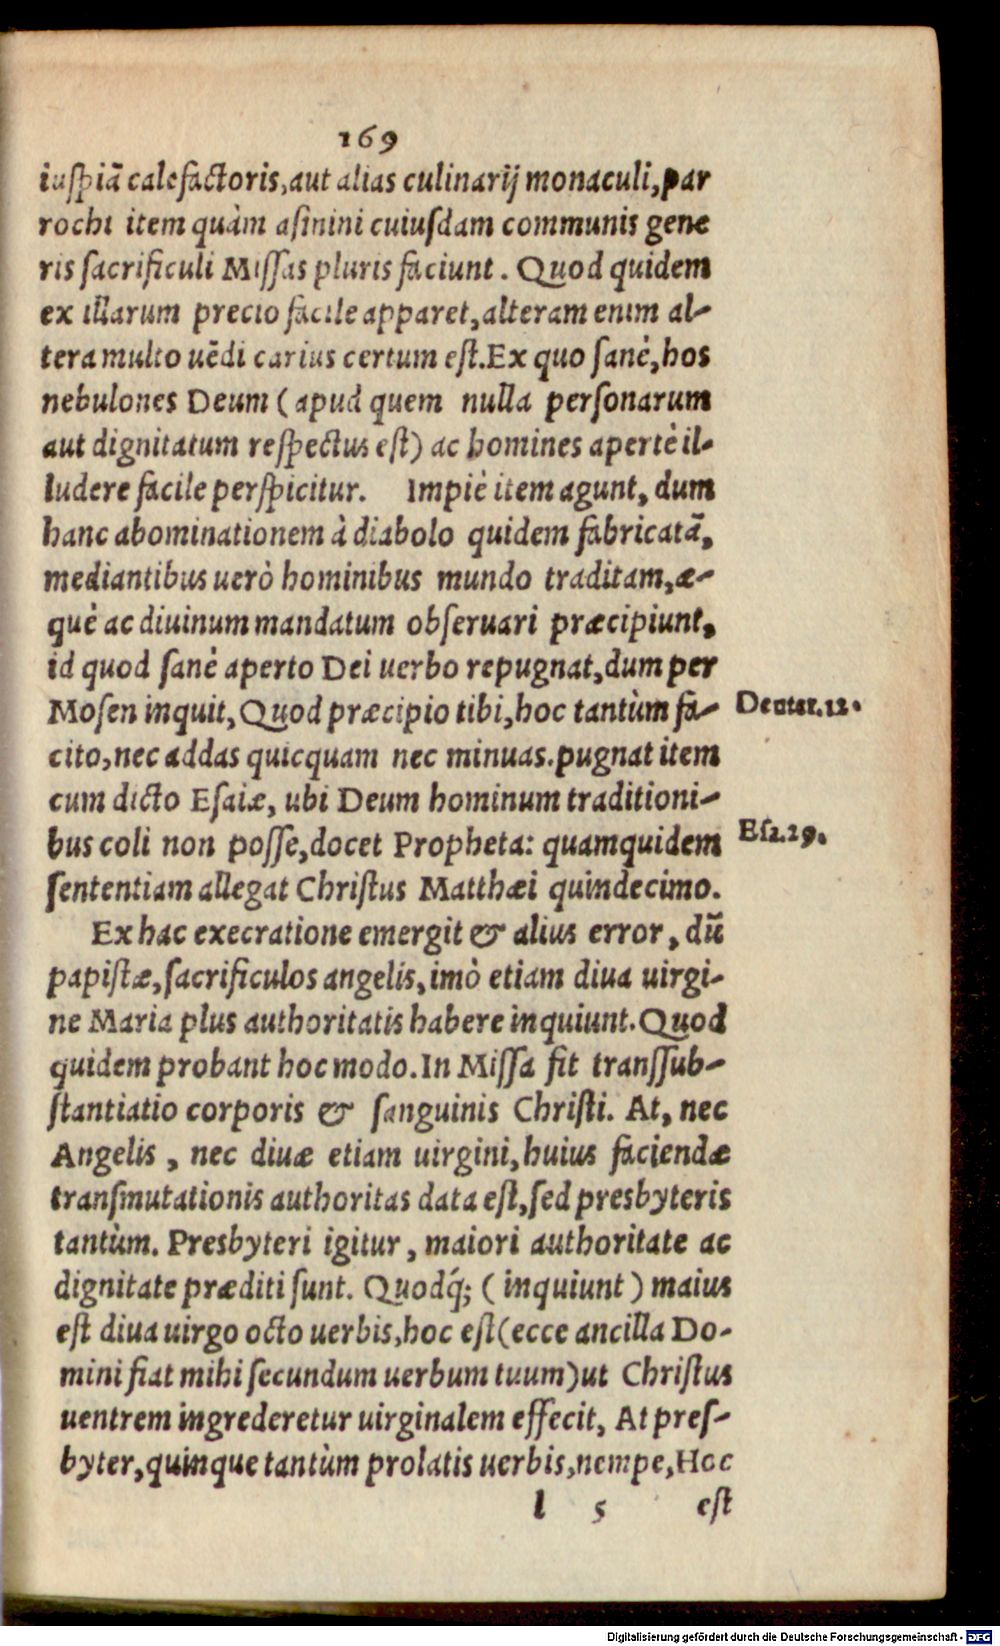 169
iuspiã calefactoris,aut alias culinarij monaculi,par
rochi item quàm asinini cuiusdam communis gene
ris sacrificuli Missas pluris faciunt. Quod quidem
ex illarum precio facile apparet,alteram enim al-
tera multo uẽdi carius certum est.Ex quo sanè,hos
nebulones Deum (apud quem nulla personarum
aut dignitatum respectus est) ac homines apertè il-
ludere facile perspicitur. Impiè item agunt, dum
hanc abominationem à diabolo quidem fabricatã,
mediantibus uerò hominibus mundo traditam,æ-
què ac diuinum mandatum obseruari præcipiunt,
id quod sanè aperto Dei uerbo repugnat,dum per
Mosen inquit,Quod præcipio tibi,hoc tantùm fa-
Deuter.12.
cito,nec addas quicquam nec minuas.pugnat item
cum dicto Esaiæ, ubi Deum hominum traditioni-
bus coli non posse,docet Propheta: quamquidem
Esa.29.
sententiam allegat Christus Matthæi quindecimo.
Ex hac execratione emergit & alius error, dũ
papistæ,sacrificulos angelis,imò etiam diua uirgi-
ne Maria plus authoritatis habere inquiunt.Quod
quidem probant hoc modo.In Missa fit transsub-
stantiatio corporis & sanguinis Christi. At, nec
Angelis, nec diuæ etiam uirgini,huius faciendæ
transmutationis authoritas data est,sed presbyteris
tantùm. Presbyteri igitur, maiori authoritate ac
dignitate præditi sunt. Quodq́; (inquiunt) maius
est diua uirgo octo uerbis,hoc est(ecce ancilla Do-
mini fiat mihi secundum uerbum tuum)ut Christus
uentrem ingrederetur uirginalem effecit, At pres-
byter,quinque tantùm prolatis uerbis,nempe,Hoc
l 5 est
Digitalisierung gefördert durch die Deutsche Forschungsgemeinschaft - DFG